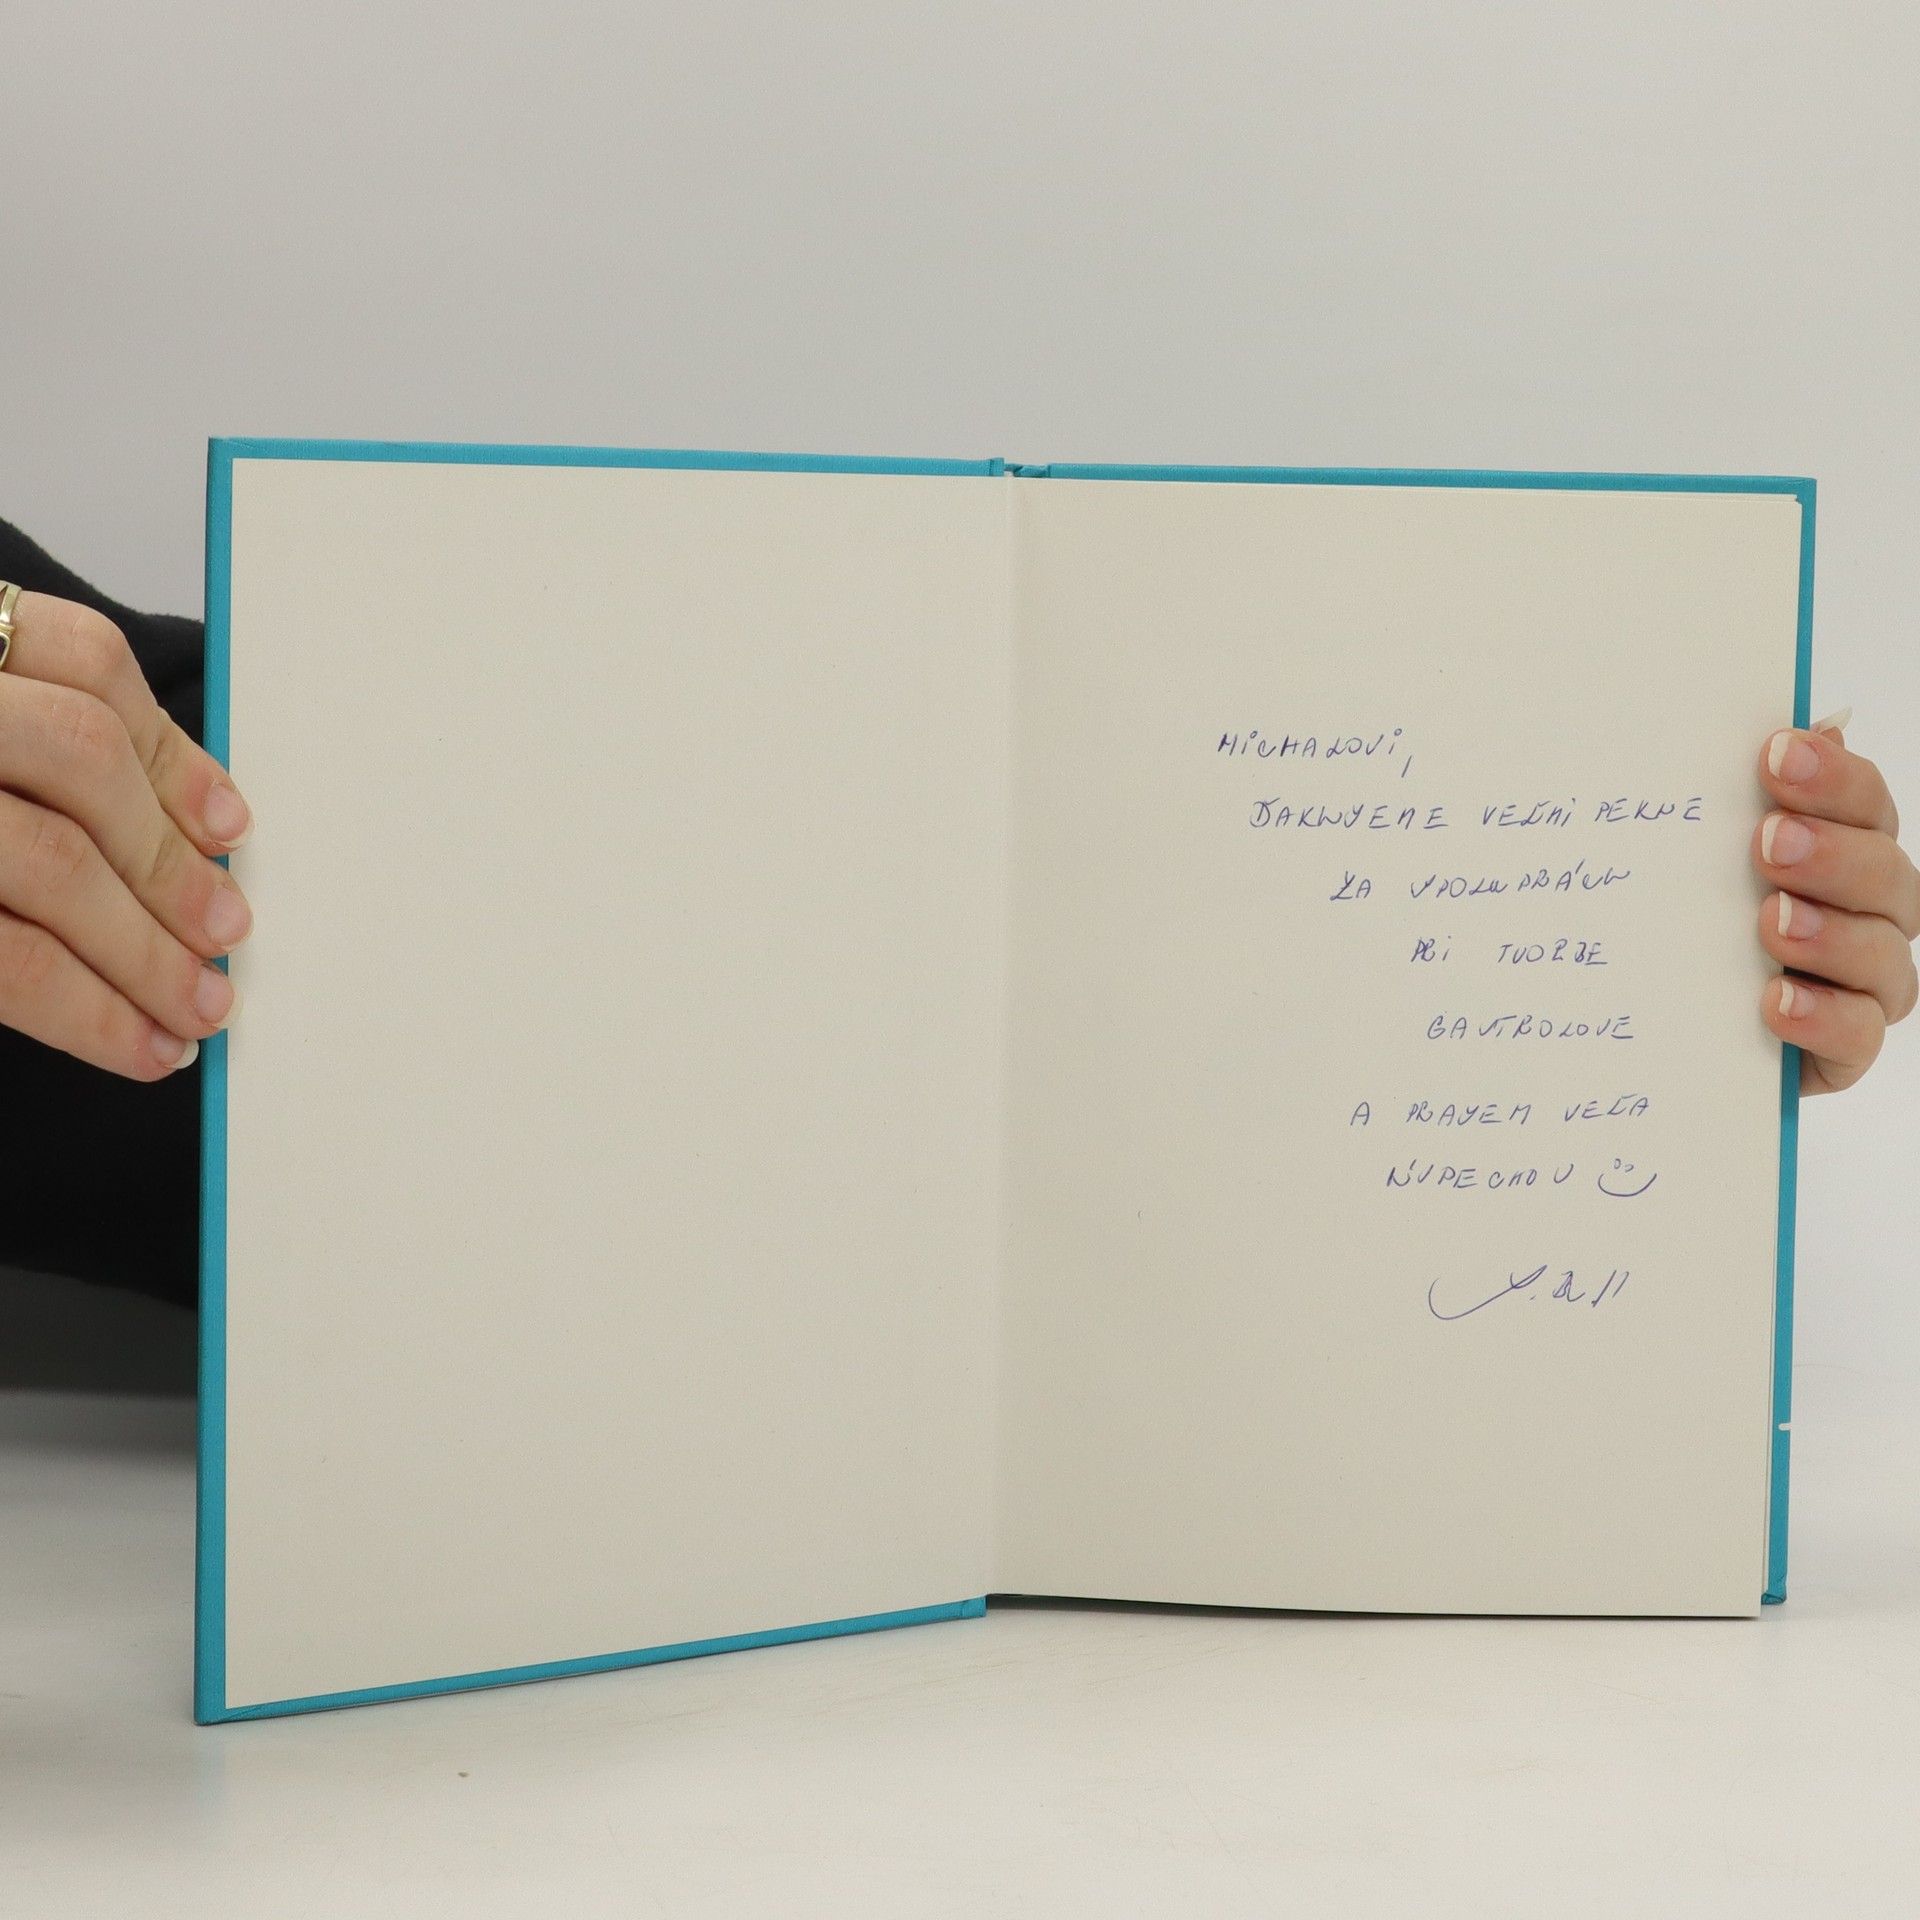 MICHALOVI,
ĎAKUJEME VEĽMI PEKNE
ZA SPOLUPRÁCU
PRI TVORBE
GASTROLOVE
A PRAJEM VEĽA
ÚSPECHOV